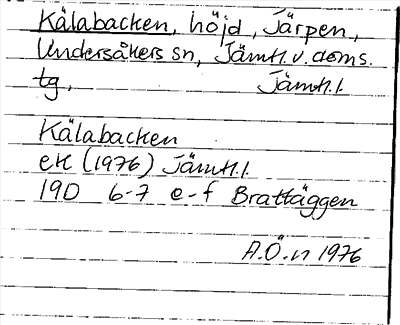 Kälabacken, höjd, Järpen,
Undersåkers sn, Jämtl. v. doms.
tg, Jämtl. l.
Kälabacken
ek (1976) Jämtl. l.
19D 6-7 e-f Brattäggen
A.Ö-n 1976